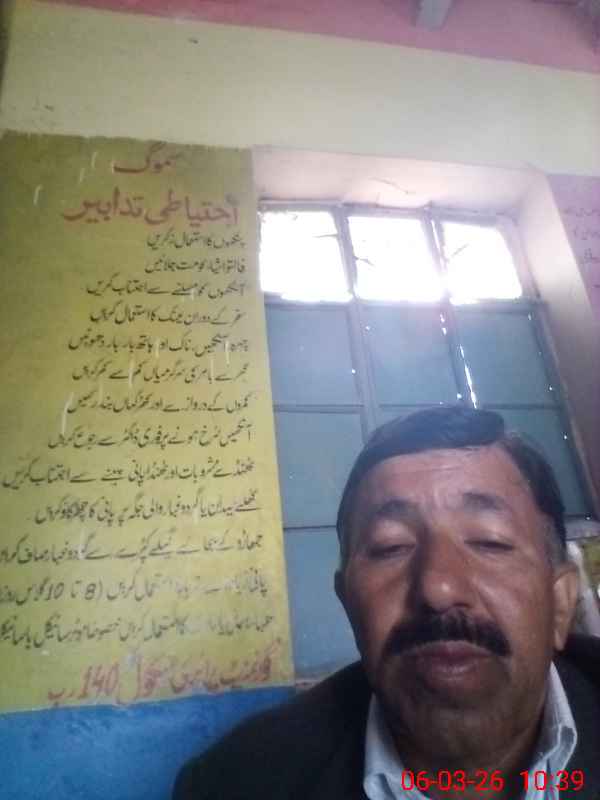 سموگ
احتیاطی تدابیر
پنکھوں کا استعمال نہ کریں
فالتو اشیاء مت جلائیں
آنکھوں کو مسلنے سے اجتناب کریں
سفر کے دوران عینک کا استعمال کریں
چہرہ، آنکھیں، ناک اور ہاتھ بار بار دھوئیں
گھر سے باہر کی سرگرمیاں کم سے کم کریں
کمروں کے دروازے اور کھڑکیاں بند رکھیں
آنکھیں سُرخ ہونے پر فوری ڈاکٹر سے رجوع کریں
ٹھنڈے مشروبات اور ٹھنڈا پانی پینے سے اجتناب کریں
کھلے میدان یا گردوغبار والی جگہ پر پانی کا چھڑکاؤ کریں
جھاڑو کے بجائے گیلے کپڑے سے گردوغبار صاف کریں
پانی زیادہ سے زیادہ استعمال کریں (8 تا 10 گلاس روز
کا استعمال کریں خصوصاً موٹر سائیکل یا سائیکل
گورنمنٹ پرائمری سکول 140 رب
06-03-26 10:39